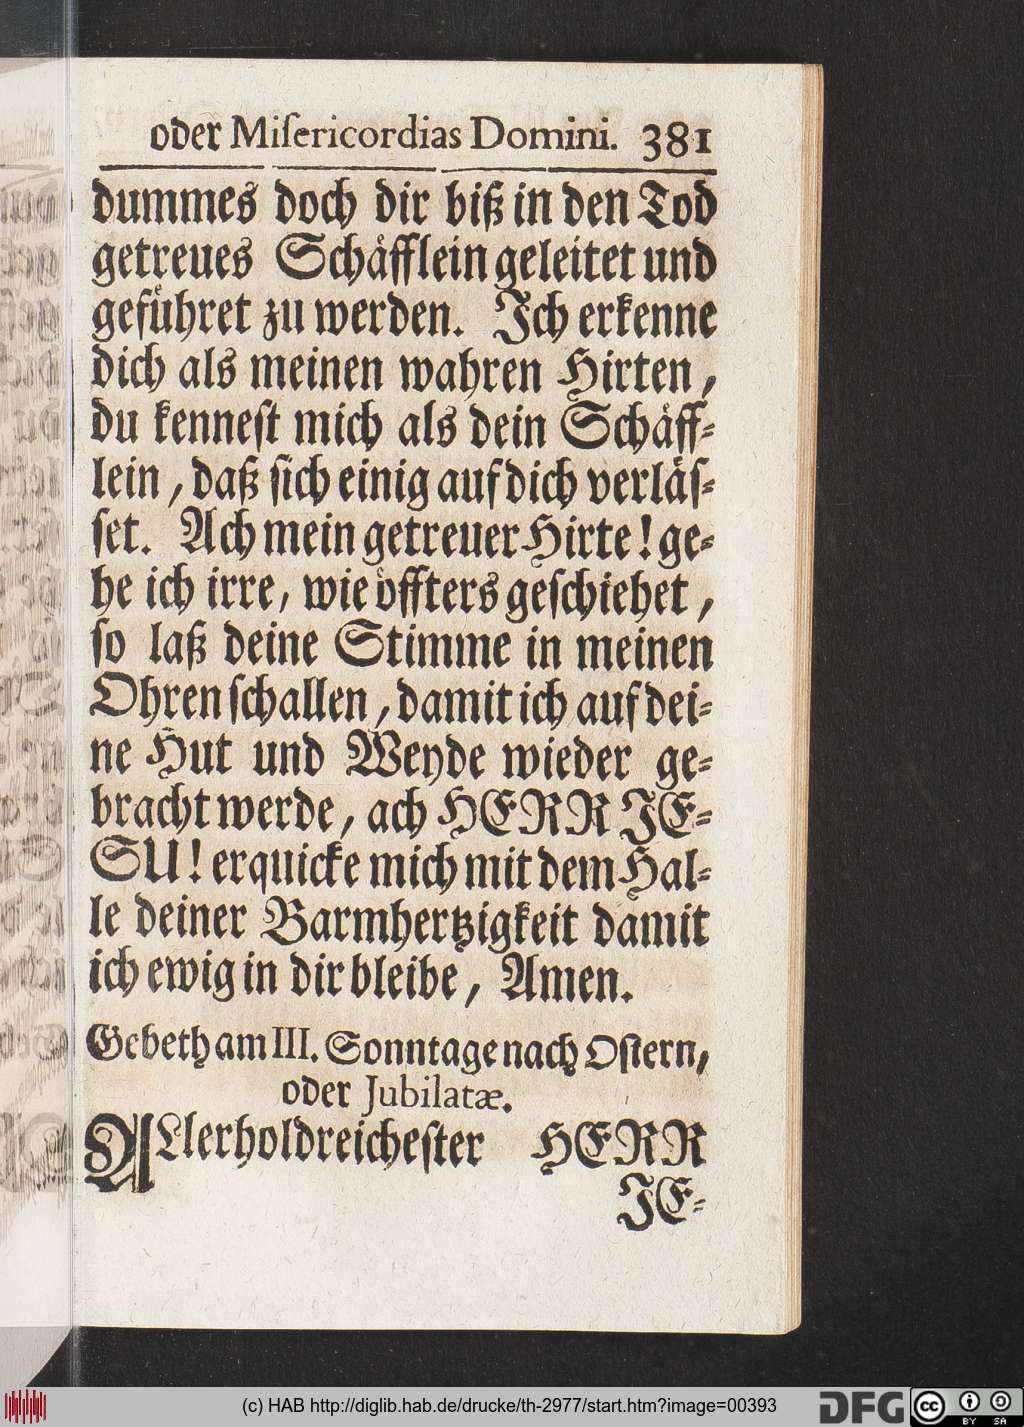 oder Miſericordias Domini. 381
dummes doch dir biß in den Tod
getreues Schäfflein geleitet und
geführet zu werden. Ich erkenne
dich als meinen wahren Hirten,
du kenneſt mich als dein Schäff-
lein, daß ſich einig auf dich verläſ-
ſet. Ach mein getreuer Hirte! ge-
he ich irre, wie öffters geſchiehet,
ſo laß deine Stimme in meinen
Ohren ſchallen, damit ich auf dei-
ne Hut und Weyde wieder ge-
bracht werde, ach HERR JE-
SU! erquicke mich mit dem Hal-
le deiner Barmhertzigkeit damit
ich ewig in dir bleibe, Amen.
Gebeth am III. Sonntage nach Oſtern,
oder Jubilatæ.
ALlerholdreicheſter HERR
JE-
(c) HAB http://diglib.hab.de/drucke/th-2977/start.htm?image=00393
DFG
cc BY SA